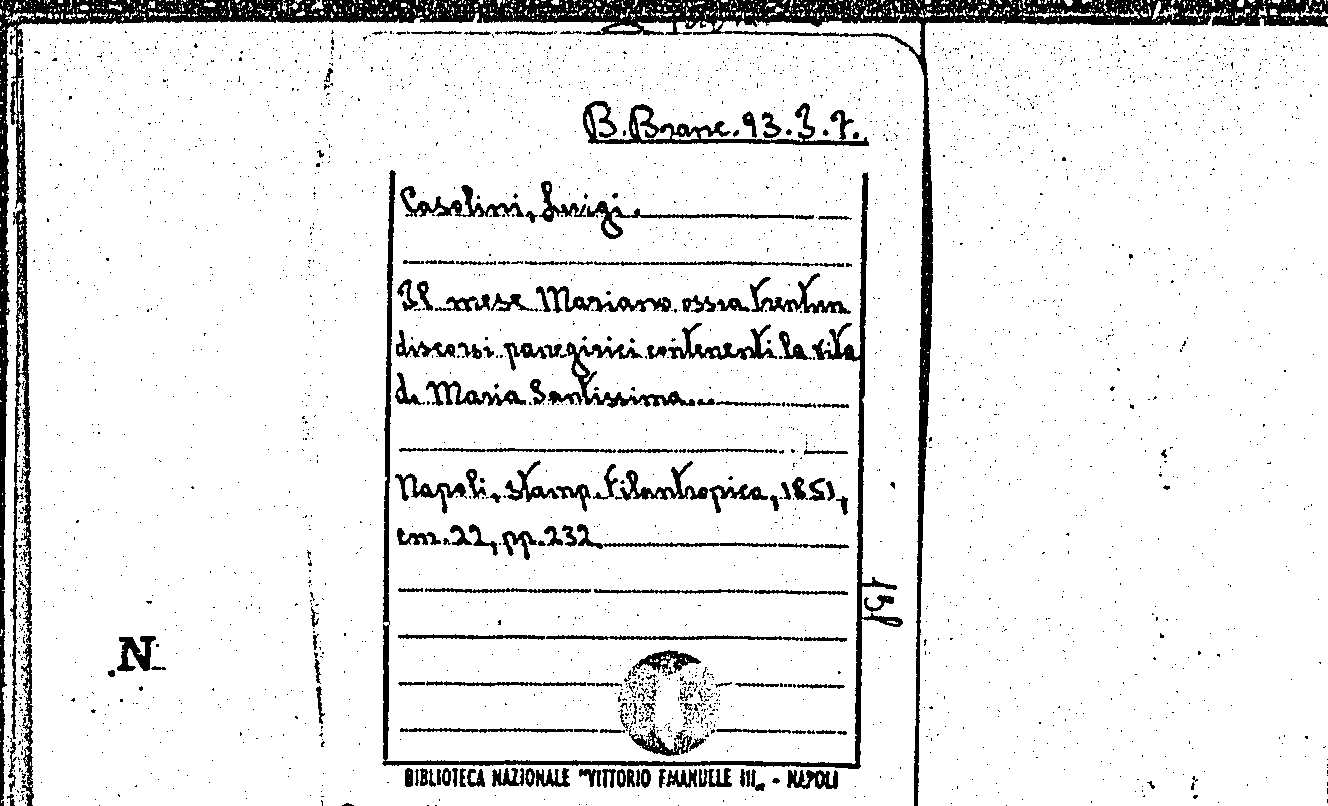 B. Branc. 93.3.7.
Casolini, Luigi.
Il mese Mariano ossia trentun
discorsi panegirici contenenti la vita
di Maria Santissima...
Napoli, stamp. Filantropica, 1851,
cm. 22, pp. 232
158
N
BIBLIOTECA NAZIONALE "VITTORIO EMANUELE III„ - NAPOLI